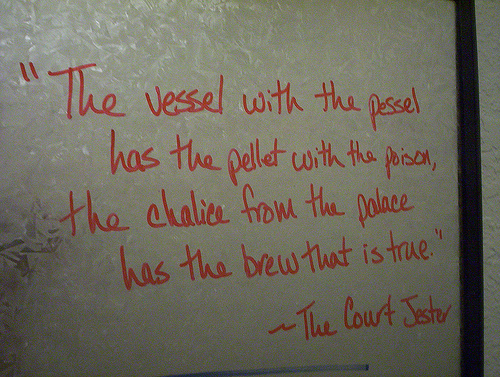 "The vessel with the pessel
has the pellet with the poison,
the chalice from the palace
has the brew that is true."
~ The Court Jester